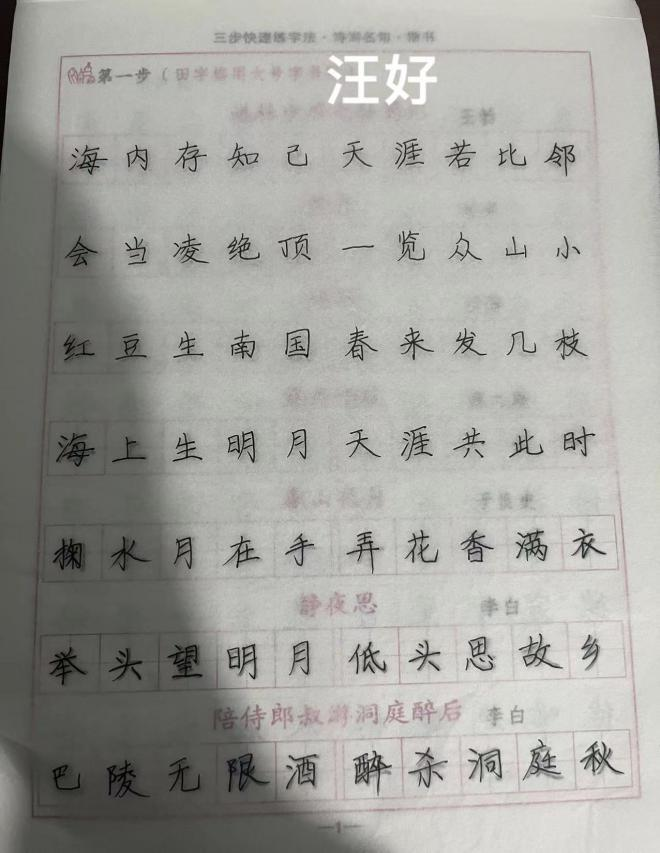 三步快速练字法·诗词名句·楷书
第一步（田字格用大号字书
汪好
王勃
海内存知己天涯若比邻
会当凌绝顶一览众山小
红豆生南国春来发几枝
海上生明月天涯共此时
春山夜月 于良史
掬水月在手弄花香满衣
静夜思 李白
举头望明月低头思故乡
陪侍郎叔游洞庭醉后 李白
巴陵无限酒醉杀洞庭秋
—1—